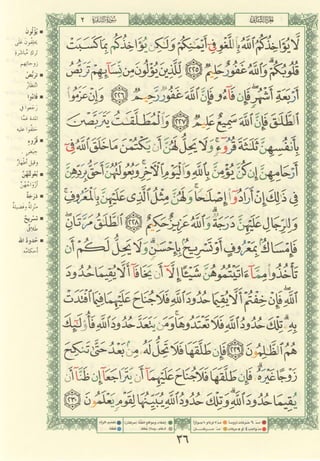 الجزء الثاني
سورة البقرة ٢
لَّا يُؤَاخِذُكُمُ ٱللَّهُ بِٱللَّغۡوِ فِيٓ أَيۡمَٰنِكُمۡ وَلَٰكِن يُؤَاخِذُكُم بِمَا كَسَبَتۡ
قُلُوبُكُمۡۗ وَٱللَّهُ غَفُورٌ حَلِيمٞ ٢٢٥ لِّلَّذِينَ يُؤۡلُونَ مِن نِّسَآئِهِمۡ تَرَبُّصُ
أَرۡبَعَةِ أَشۡهُرٖۖ فَإِن فَآءُو فَإِنَّ ٱللَّهَ غَفُورٞ رَّحِيمٞ ٢٢٦ وَإِنۡ عَزَمُواْ
ٱلطَّلَٰقَ فَإِنَّ ٱللَّهَ سَمِيعٌ عَلِيمٞ ٢٢٧ وَٱلۡمُطَلَّقَٰتُ يَتَرَبَّصۡنَ
بِأَنفُسِهِنَّ ثَلَٰثَةَ قُرُوٓءٖۚ وَلَا يَحِلُّ لَهُنَّ أَن يَكۡتُمۡنَ مَا خَلَقَ ٱللَّهُ فِيٓ
أَرۡحَامِهِنَّ إِن كُنَّ يُؤۡمِنَّ بِٱللَّهِ وَٱلۡيَوۡمِ ٱلۡأٓخِرِۚ وَبُعُولَتُهُنَّ أَحَقُّ بِرَدِّهِنَّ
فِي ذَٰلِكَ إِنۡ أَرَادُوٓاْ إِصۡلَٰحٗاۚ وَلَهُنَّ مِثۡلُ ٱلَّذِي عَلَيۡهِنَّ بِٱلۡمَعۡرُوفِۚ
وَلِلرِّجَالِ عَلَيۡهِنَّ دَرَجَةٞۗ وَٱللَّهُ عَزِيزٌ حَكِيمٌ ٢٢٨ ٱلطَّلَٰقُ مَرَّتَانِۖ
فَإِمۡسَاكُۢ بِمَعۡرُوفٍ أَوۡ تَسۡرِيحُۢ بِإِحۡسَٰنٖۗ وَلَا يَحِلُّ لَكُمۡ أَن
تَأۡخُذُواْ مِمَّآ ءَاتَيۡتُمُوهُنَّ شَيۡـًٔا إِلَّآ أَن يَخَافَآ أَلَّا يُقِيمَا حُدُودَ
ٱللَّهِۖ فَإِنۡ خِفۡتُمۡ أَلَّا يُقِيمَا حُدُودَ ٱللَّهِ فَلَا جُنَاحَ عَلَيۡهِمَا فِيمَا ٱفۡتَدَتۡ
بِهِۦۗ تِلۡكَ حُدُودُ ٱللَّهِ فَلَا تَعۡتَدُوهَاۚ وَمَن يَتَعَدَّ حُدُودَ ٱللَّهِ فَأُوْلَٰٓئِكَ
هُمُ ٱلظَّٰلِمُونَ ٢٢٩ فَإِن طَلَّقَهَا فَلَا تَحِلُّ لَهُۥ مِنۢ بَعۡدُ حَتَّىٰ تَنكِحَ
زَوۡجًا غَيۡرَهُۥۗ فَإِن طَلَّقَهَا فَلَا جُنَاحَ عَلَيۡهِمَآ أَن يَتَرَاجَعَآ إِن ظَنَّآ أَن
يُقِيمَا حُدُودَ ٱللَّهِۗ وَتِلۡكَ حُدُودُ ٱللَّهِ يُبَيِّنُهَا لِقَوۡمٖ يَعۡلَمُونَ ٢٣٠
يُؤْلُونَ
تَرَبُّصُ
فَاءُوا
قُرُوء
دَرَجَة
تَسْرِيح
طلاق
حُدُودُ الله
أحكامه
٣٦